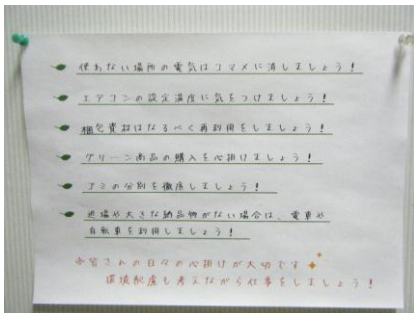 使わない場所の電気はコマメに消しましょう！
エアコンの設定温度に気をつけましょう！
梱包資材はなるべく再利用をしましょう！
グリーン商品の購入を心掛けましょう！
ゴミの分別を徹底しましょう！
近場や大きな納品物がない場合は、電車や
自転車を利用しましょう！
☆皆さんの日々の心掛けが大切です
環境配慮も考えながら仕事をしましょう！